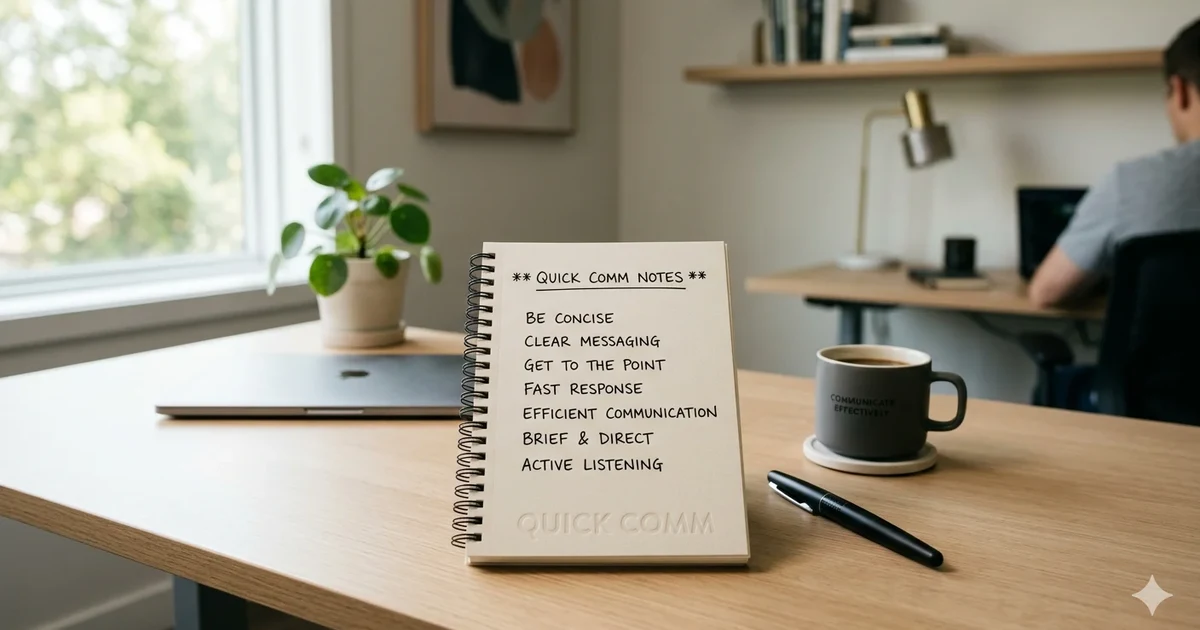 ** QUICK COMM NOTES **
BE CONCISE
CLEAR MESSAGING
GET TO THE POINT
FAST RESPONSE
EFFICIENT COMMUNICATION
BRIEF & DIRECT
ACTIVE LISTENING
QUICK COMM
COMMUNICATE
EFFECTIVELY